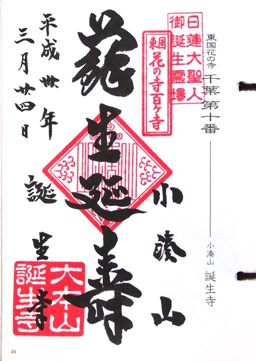 東国花の寺 千葉第十番 ―― 小湊山 誕生寺
日蓮大聖人
御誕生霊場
東国花の寺百ヶ寺
小湊山
蘇生延寿
平成卅年
三月廿四日
誕生寺
大本山
誕生寺
40